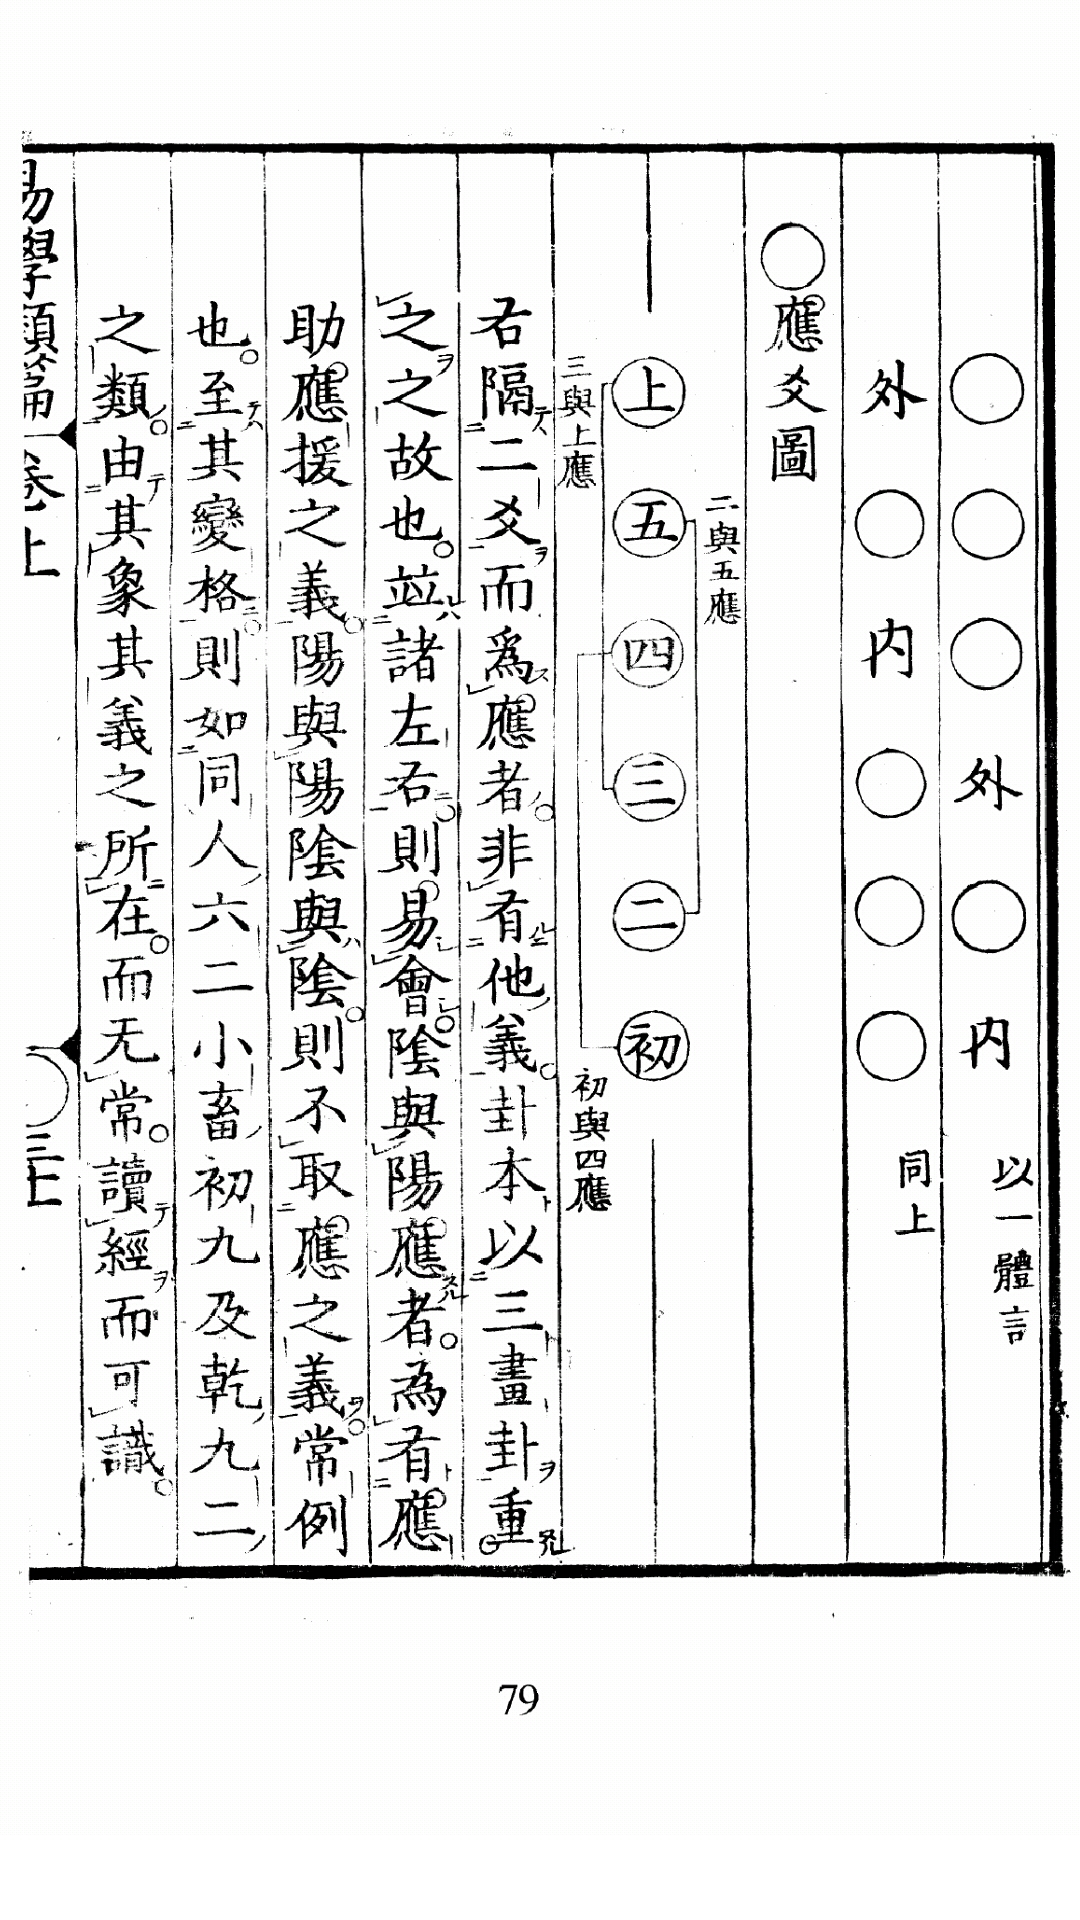 ○○○外○内 以一體言
外○内○○○ 同上
○應爻圖
二與五應
上五四三二初
三與上應
初與四應
右隔二爻而爲應者。非有他義。卦本以三畫卦重
之之故也。竝諸左右。則易會。陰與陽應者。為有應
助應援之義。陽與陽陰與陰。則不取應之義。常例
也。至其變格。則如同人六二小畜初九及乾九二
之類。由其象其義之所在。而无常。讀經而可識。
易學類篇 卷上 三上
79